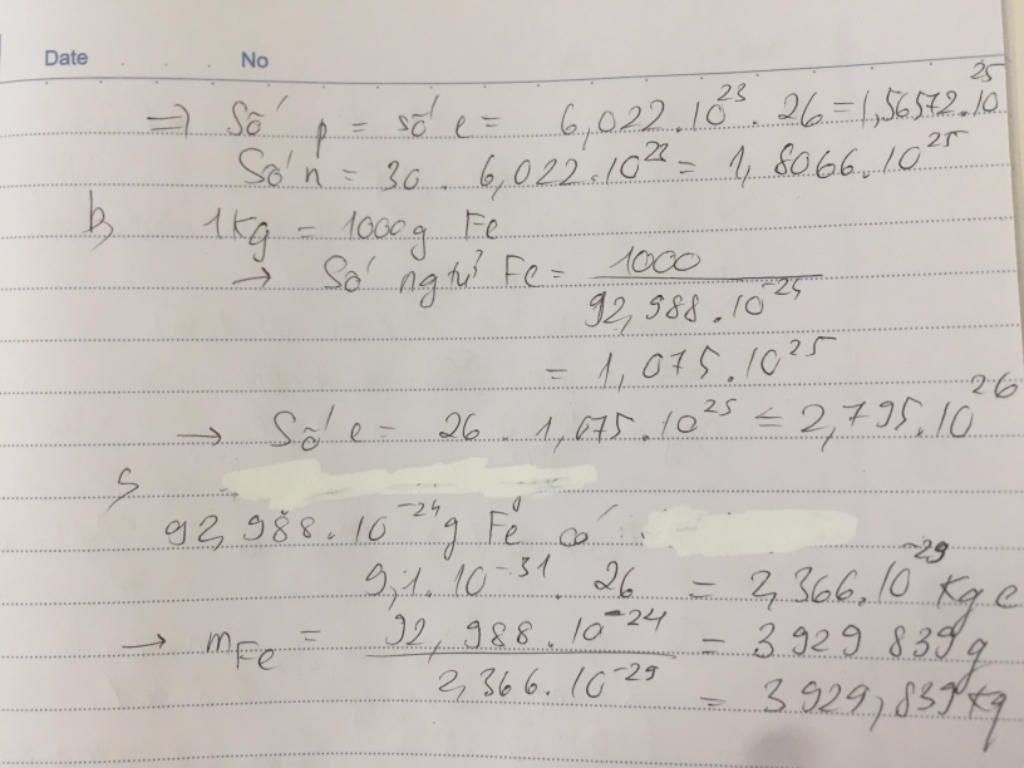 Date No
=> Số p = số e = 6,022.10^23 . 26 = 1,56572.10^25
Số n = 30 . 6,022.10^23 = 1,8066.10^25
b, 1Kg = 1000g Fe
→ Số ngtử Fe = 1000 / 92,988.10^-24
= 1,075.10^25
→ Số e = 26 . 1,075.10^25 = 2,795.10^26
92,988.10^-24 g Fe có
9,1.10^-31 . 26 = 2,366.10^-29 Kg e
→ mFe = 92,988.10^-24 / 2,366.10^-29 = 3929 839g
= 3929,839 Kg